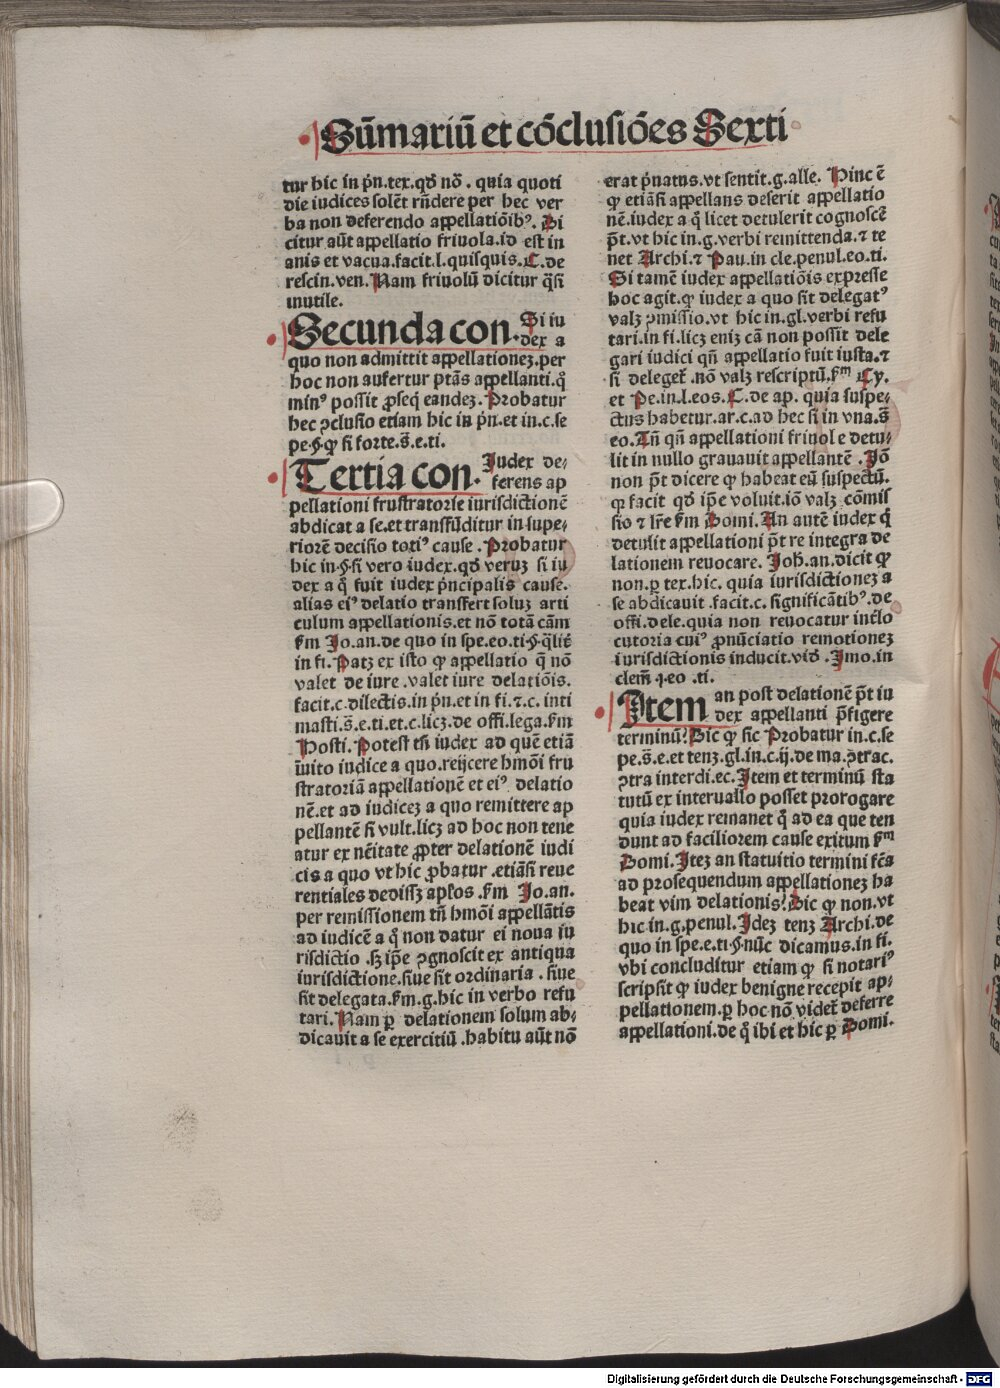 Sūmariū et cōclusiōes Sexti
tur hic in pͥn.tex.qđ nō. quia quoti
die iudices solēt rn̄dere per hec ver
ba non deferendo appellatiōibꝰ. Di
citur aūt appellatio friuola.id est in
anis et vacua.facit.l.quisquis.C.de
rescin.ven. Nam friuolū dicitur q̄si
inutile.
Secunda con. Si iu
dex a
quo non admittit appellationeꝫ.per
hoc non aufertur ptās appellanti.qͦ
minꝰ possit ꝓseqͥ eandeꝫ. Probatur
hec ꝯclusio etiam hic in pͥn.et in.c.se
pe.§.ꝙ si forte.s̄.e.ti.
Tertia con. Iudex de⸗
ferens ap
pellationi frustratorie iurisdictionē
abdicat a se.et transfūditur in supe⸗
riorē decisio totiꝰ cause. Probatur
hic in.§.si vero iudex.qđ veruꝫ si iu
dex a qͦ fuit iudex pͥncipalis cause.
alias eiꝰ delatio transfert soluꝫ arti
culum appellationis.et nō totā cām
ẜm Jo.an.de quo in spe.eo.ti.§.q̄lit̄
in fi. Patꝫ ex isto ꝙ appellatio q̄ nō
valet de iure .valet iure delatiōis.
facit.c.dilectis.in pͥn.et in fi.⁊.c. inti
masti.s̄.e.ti.et.c.licꝫ.de offi.lega.ẜm
Hosti. Potest tn̄ iudex ad quē etiā
īuito iudice a quo.reijcere hmōi fru
stratoriā appellationē et eiꝰ delatio
nē.et ad iudiceꝫ a quo remittere ap
pellantē si vult.licꝫ ad hoc non tene
atur ex nc̄itate ꝓpter delationē iudi
cis a quo vt hic ꝓbatur .etiāsi reue
rentiales dedissꝫ apl̄os .ẜm Jo.an.
per remissionem tn̄ hmōi appellātis
ad iudicē a qͦ non datur ei noua iu
risdictio .sꝫ ip̄e ꝯgnoscit ex antiqua
iurisdictione.siue sit ordinaria . siue
sit delegata.ẜm.g.hic in verbo refu
tari. Nam ꝑ delationem solum ab⸗
dicauit a se exercitiū .habitu aūt nō
erat pͥuatus.vt sentit.g.alle. Hinc ē
ꝙ etiāsi appellans deserit appellatio
nē.iudex a qͦ licet detulerit cognoscē
p̄t.vt hic in.g.verbi remittenda.⁊ te
net Archi.⁊ Pau.in cle.penul.eo.ti.
Si tamē iudex appellatiōis expresse
hoc agit.ꝙ iudex a quo sit delegatꝰ
valꝫ ꝯmissio.vt hic in.gl.verbi refu
tari.in fi.licꝫ eniꝫ cā non possit dele
gari iudici qn̄ appellatio fuit iusta.⁊
si deleget̄ .nō valꝫ rescriptū.ẜm Cy.
et Pe.in.l.eos.C.de ap. quia suspe⸗
ctus habetur.ar.c.ad hec si in vna.s̄
eo. Tn̄ qn̄ appellationi friuole detu⸗
lit in nullo grauauit appellantē . Iō
non p̄t dicere ꝙ habeat eū suspectū.
ꝙ facit qđ ip̄e voluit.iō valꝫ cōmis
sio ⁊ lr̄e ẜm Domi. An autē iudex qͥ
detulit appellationi p̄t re integra de
lationem reuocare. Joh̄.an.dicit ꝙ
non.ꝑ tex.hic. quia iurisdictioneꝫ a
se abdicauit .facit.c. significātibꝰ.de
offi.dele.quia non reuocatur int̄lo
cutoria cuiꝰ ꝓnūciatio remotioneꝫ
iurisdictionis inducit.vid̄ . Imo.in
clem̄.1.eo .ti.
Item an post delationē p̄t iu
dex appellanti p̄figere
terminū? Dic ꝙ sic Probatur in.c.se
pe.s̄.e.et tenꝫ.gl.in.c.ij.de ma.ꝯtrac.
ꝯtra interdi.ec. Item et terminū sta
tutū ex interuallo posset prorogare
quia iudex remanet qͦ ad ea que ten
dunt ad faciliorem cause exitum ẜm
Domi. Iteꝫ an statuitio termini fc̄a
ad prosequendum appellationeꝫ ha
beat vim delationis? Dic ꝙ non.vt
hic in.g.penul. Ideꝫ tenꝫ Archi.de
quo in spe.e.ti.§.nūc dicamus.in fi.
vbi concluditur etiam ꝙ si notariꝰ
scripsit ꝙ iudex benigne recepit ap⸗
pellationem.ꝑ hoc nō videt̄ deferre
appellationi.de qͦ ibi et hic ꝑ Domi.
Digitalisierung gefördert durch die Deutsche Forschungsgemeinschaft - DFG